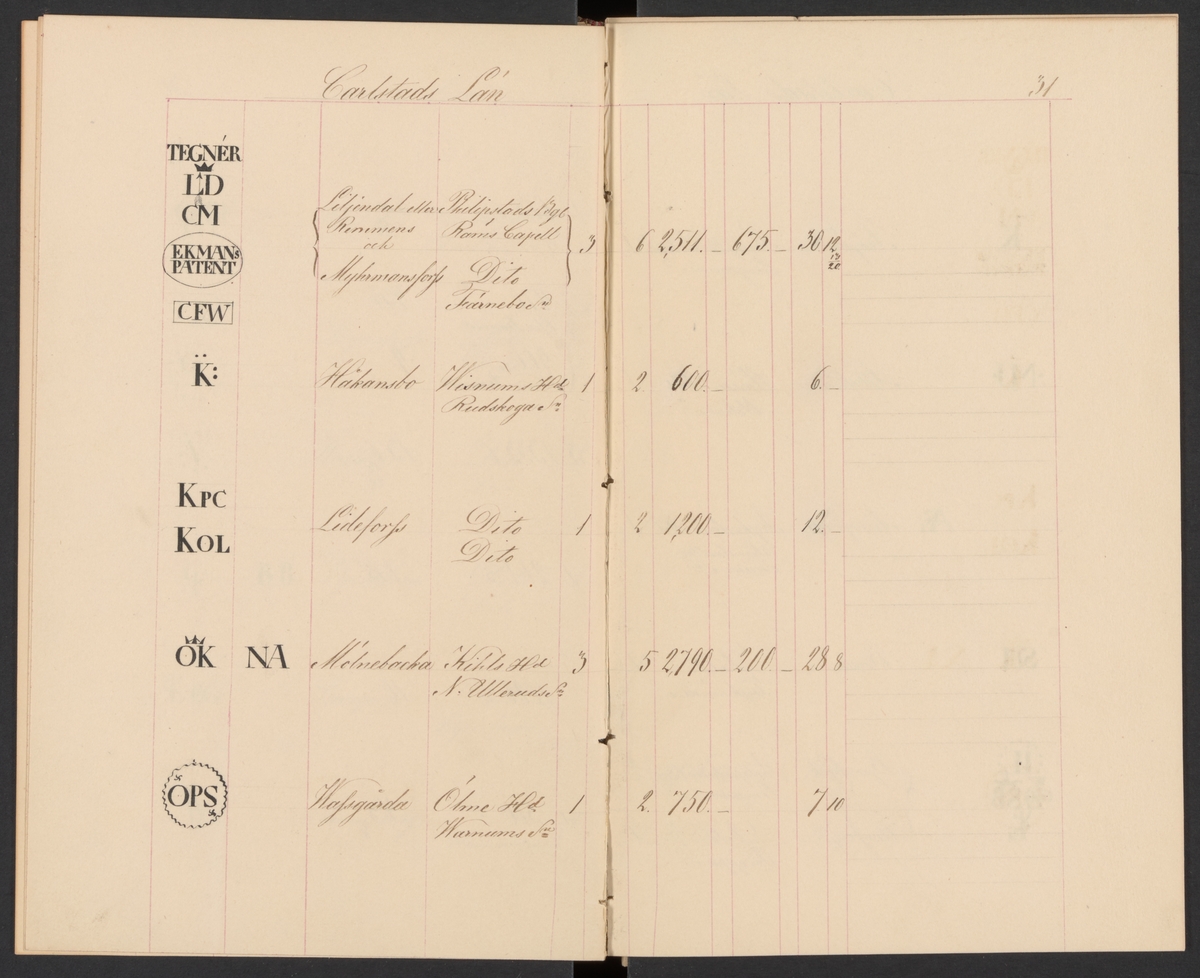 Carlstads Län
31
TEGNÉR
LD
CM
EKMANs
PATENT
CFW
Liljendal eller Philipstads Bgl
Rämens Capell
och
Myhrmansforss Dito
Färnebo Sn
3 6 2,511.— 675.— 30 12 13/20
K̈: Håkansbo Wisnums Hd 1 2. 600.— 6.—
Rudskoga Sn
KPC
KOL
Lideforss Dito 1 2 1,200.— 12.—
Dito
ÖK NA Mölnebacka Kihls Hd 3 5 2,790.— 200.— 28 8
N. Ulleruds Sn
OPS Wassgårda Ölme Hd. 1 2. 750.— 7 10
Warnums Sn